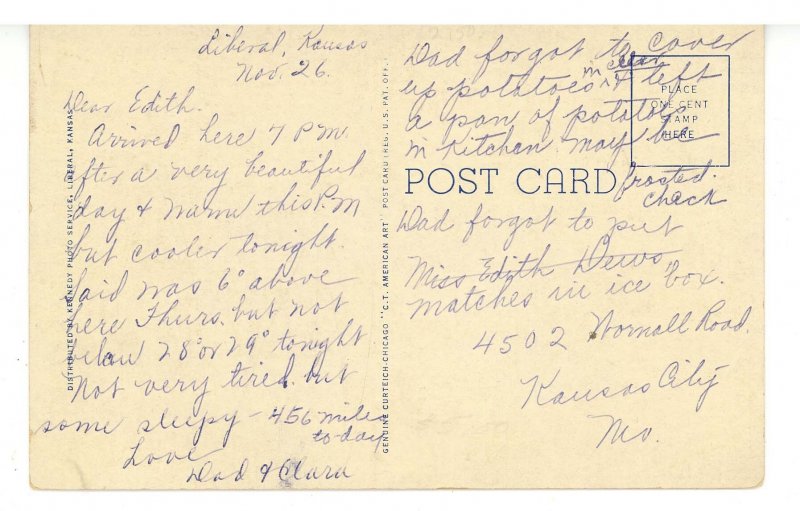 Liberal, Kansas
Nov. 26.
Dear Edith.
Arrived here 7 P.M.
after a very beautiful
day & warm this P.M
but cooler tonight.
Said was 6° above
here Thurs. but not
below 28° or 29° tonight
Not very tired but
some sleepy - 456 miles
to-day
Love
Dad & Clara
DISTRIBUTED BY KENNEDY PHOTO SERVICE, LIBERAL, KANSAS
GENUINE CURTEICH-CHICAGO "C.T. AMERICAN ART" POST CARD (REG. U.S. PAT. OFF.)
Dad forgot to cover
up potatoes in cellar & left
a pan of potatoes
in kitchen. may be
frosted.
check
PLACE
ONE CENT
STAMP
HERE
POST CARD
Dad forgot to put
Miss Edith Dews
matches in ice box.
4502 Wornall Road.
Kansas City
Mo.